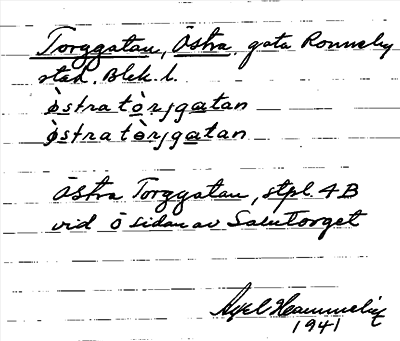 Torggatan, Östra, gata Ronneby
stad. Blek. l.
ö̀stratò̱rjga̱tan
ö̀stratò̱rjga̱tan
Östra Torggatan, stpl. 4B
vid ö sidan av Salutorget
Axel Hammelin
1941